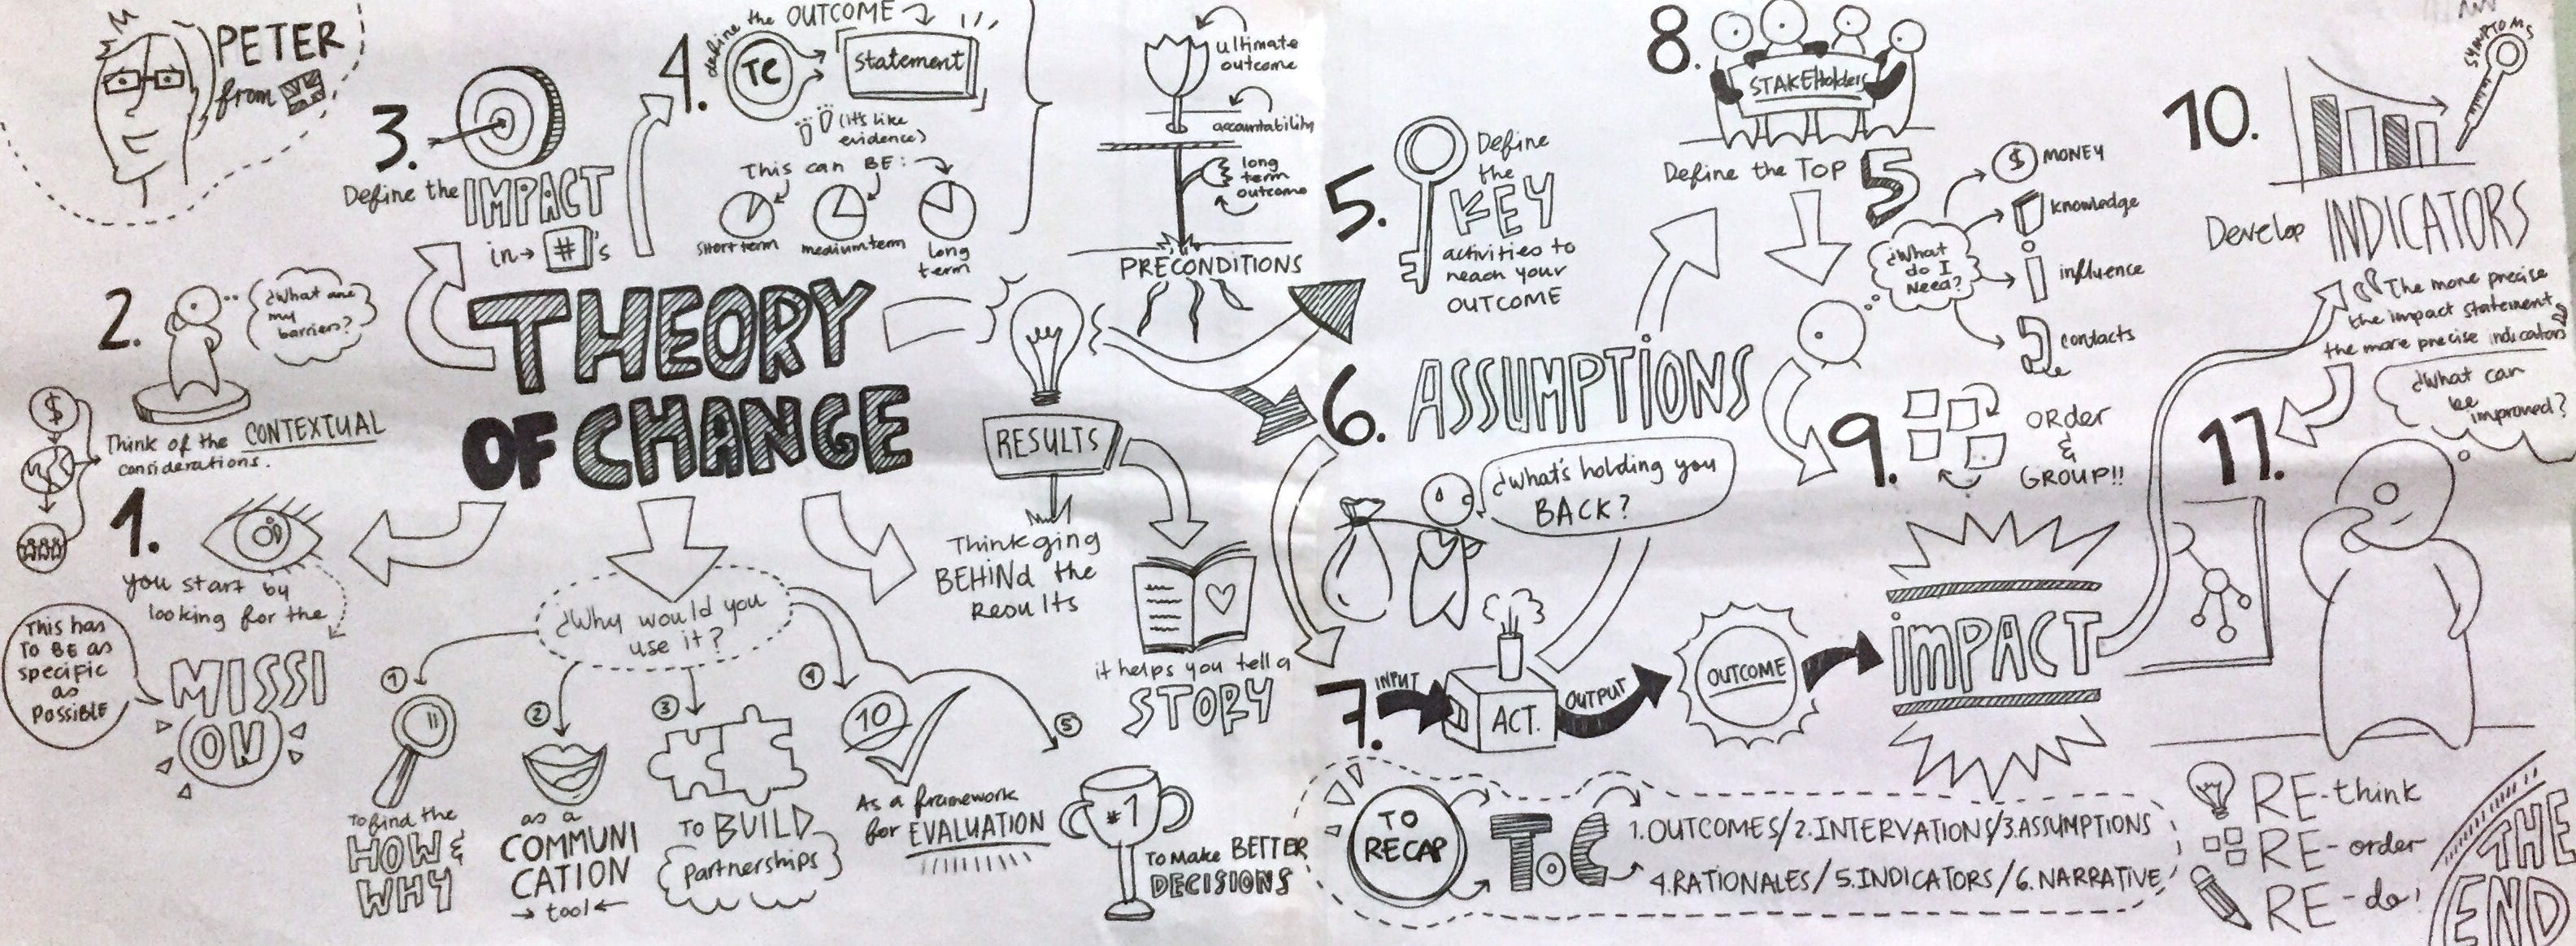 PETER
from
THEORY
OF CHANGE
1.
you start by
looking for the
MISSI
ON
This has
TO BE as
specific
as
POSSIBLE
2.
¿What are
my
barriers?
Think of the CONTEXTUAL
considerations.
$
3.
Define the IMPACT
in → #'s
4.
define the OUTCOME
TC
statement
(it's like
evidence)
This can BE:
short term
medium term
long
term
ultimate
outcome
accountability
long
term
outcome
PRECONDITIONS
RESULTS
Thinkging
BEHiNd the
Results
it helps you tell a
STORY
¿Why would you
use it?
1
To find the
HOW &
WHY
2
as a
COMMUNI
CATION
→ tool ←
3
TO BUILD
partnerships
4
10
As a framework
for EVALUATION
5
#1
To Make BETTER
DECISIONS
5.
Define
the
KEY
activities to
reach your
OUTCOME
6. ASSUMPTiONS
¿What's holding you
BACK?
7.
INPUT
ACT.
OUTPUT
OUTCOME
iMPACT
8.
STAKEholders
Define the TOP 5
¿What
do I
Need?
$ MONEY
knowledge
influence
contacts
9.
ORder
&
GROUP!!
10.
SYMPTOMS
Develop INDICATORS
The more precise
the impact statement
the more precise indicators
11.
¿What can
be
improved?
TO
RECAP
ToC
1.OUTCOMES/2.INTERVATIONS/3.ASSUMPTIONS
4.RATIONALES/5.INDICATORS/6.NARRATIVE
RE-think
RE-order
RE-do!
THE
END